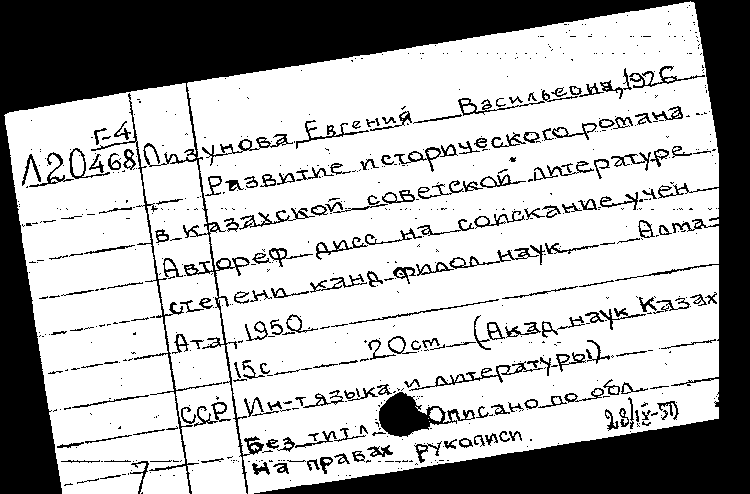 Г-4
Л20468
Лизунова, Евгений Васильевна, 1926
Развитие исторического романа
в казахской советской литературе
Автореф дисс на соискание учен
степени канд филол наук. Алма-
Ата, 1950.
15с 20см (Акад наук Казах
ССР Ин-т языка и литературы).
Без тит л. Описано по обл.
На правах рукописи.
28/IX-50